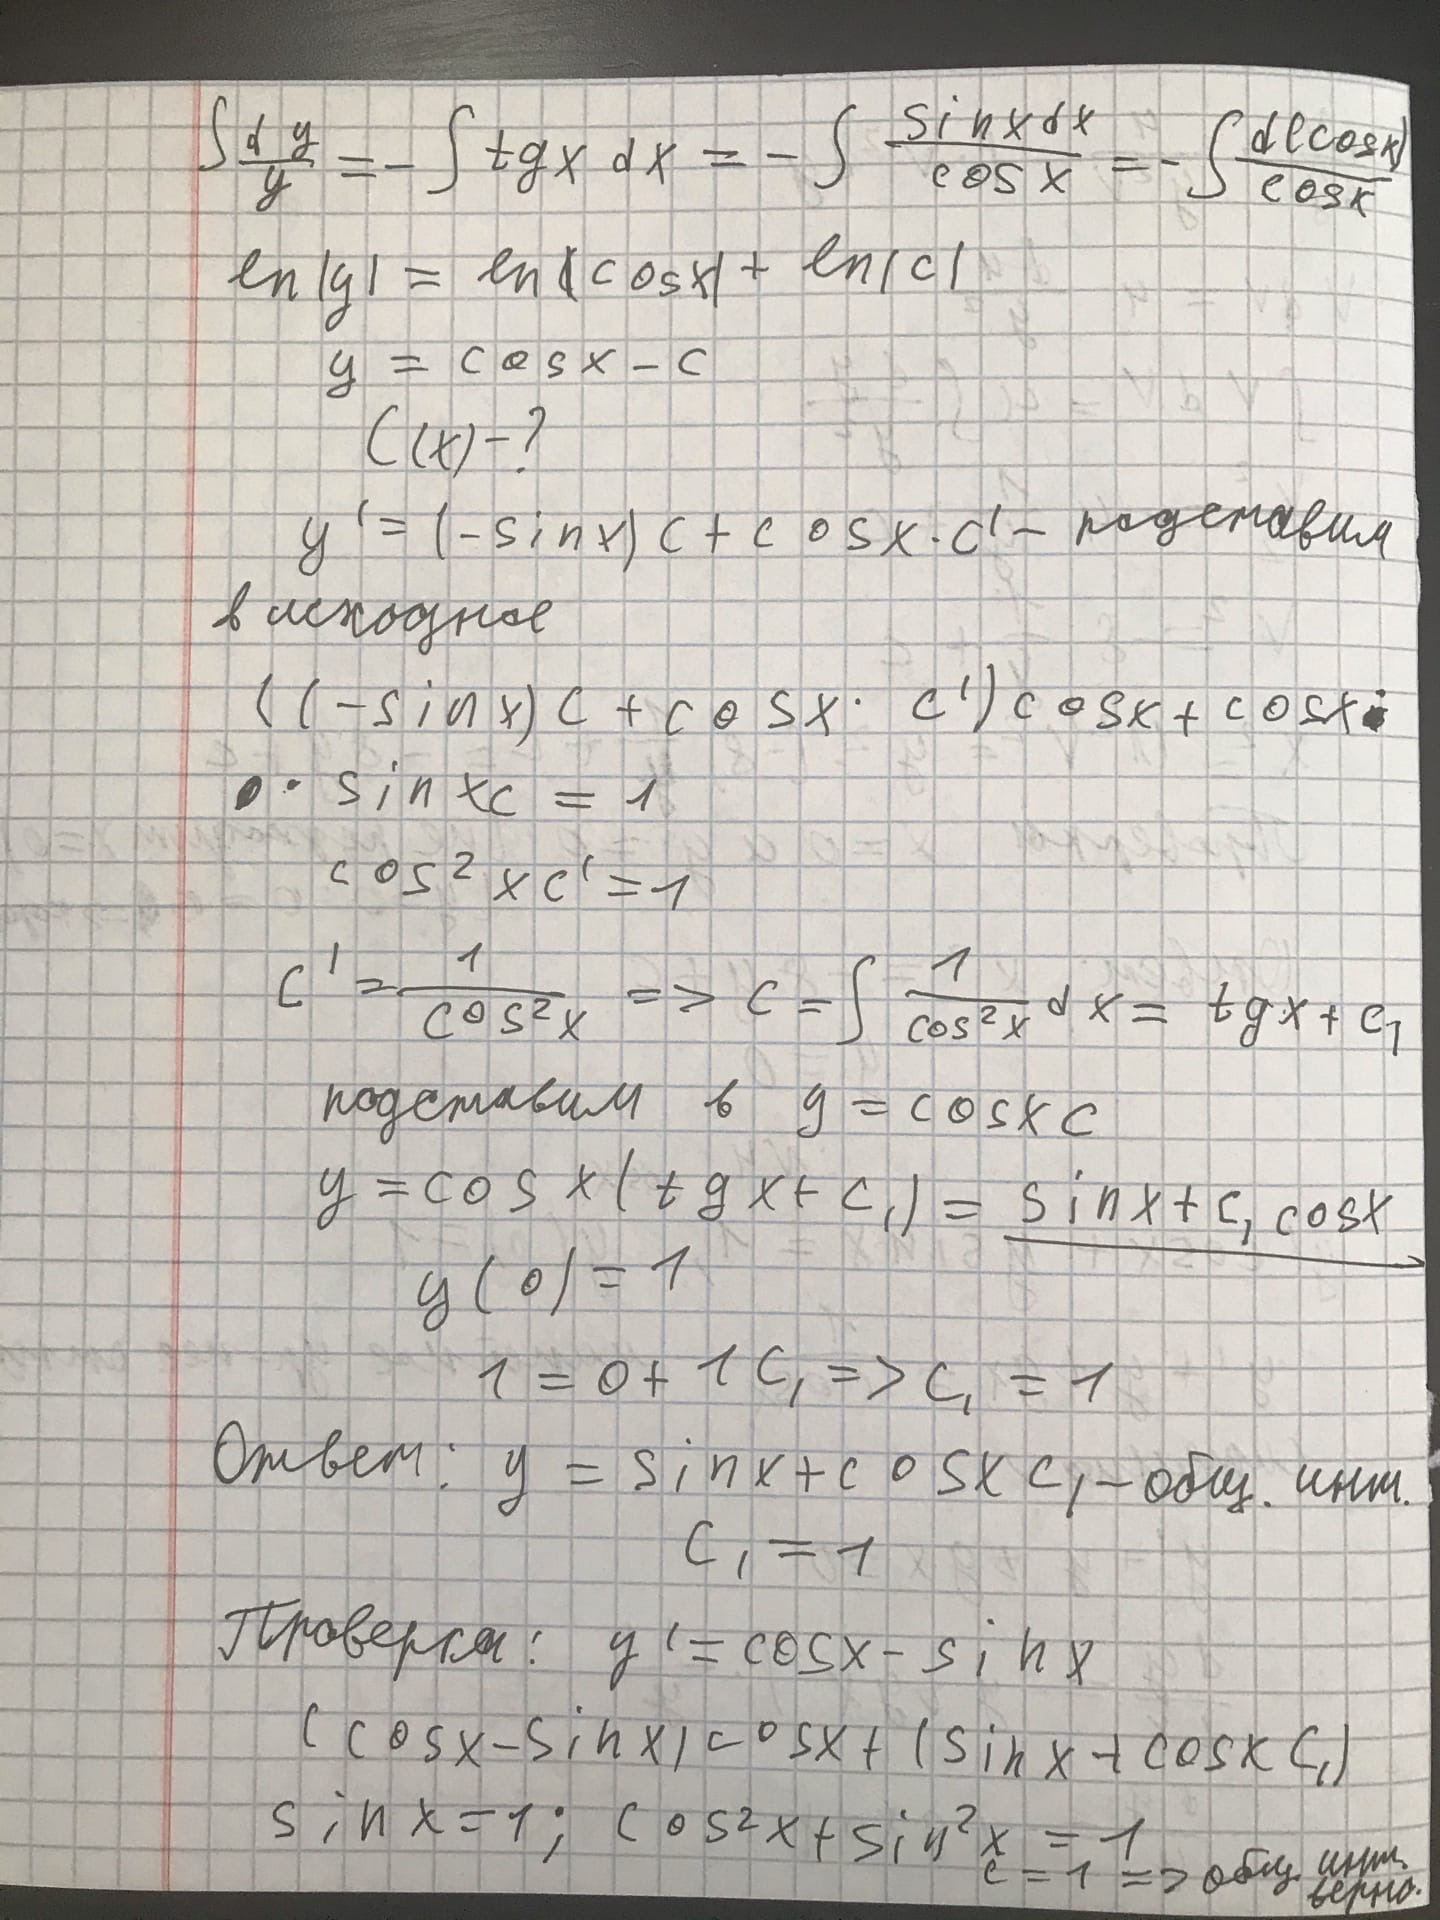 ∫ dy/y = - ∫ tgx dx = - ∫ sinxdx/cosx = - ∫ d(cosx)/cosx
ln|y| = ln|cosx| + ln|c|
y = cosx - c
C(x) - ?
y' = (-sinx)c + cosx · c' - подставим
в исходное
((-sinx)c + cosx · c')cosx + cosx ·
· sinxc = 1
cos²xc' = 1
c' = 1/cos²x => c = ∫ 1/cos²x dx = tgx + c₁
подставим в y = cosxc
y = cosx(tgx + c₁) = sinx + c₁cosx
y(0) = 1
1 = 0 + 1C₁ => C₁ = 1
Ответ: y = sinx + cosxc₁ - общ. инт.
C₁ = 1
Проверка: y' = cosx - sinx
(cosx - sinx)cosx + (sinx + cosxC₁)
sinx = 1; cos²x + sin²x = 1
c = 1 => общ. инт.
верно.